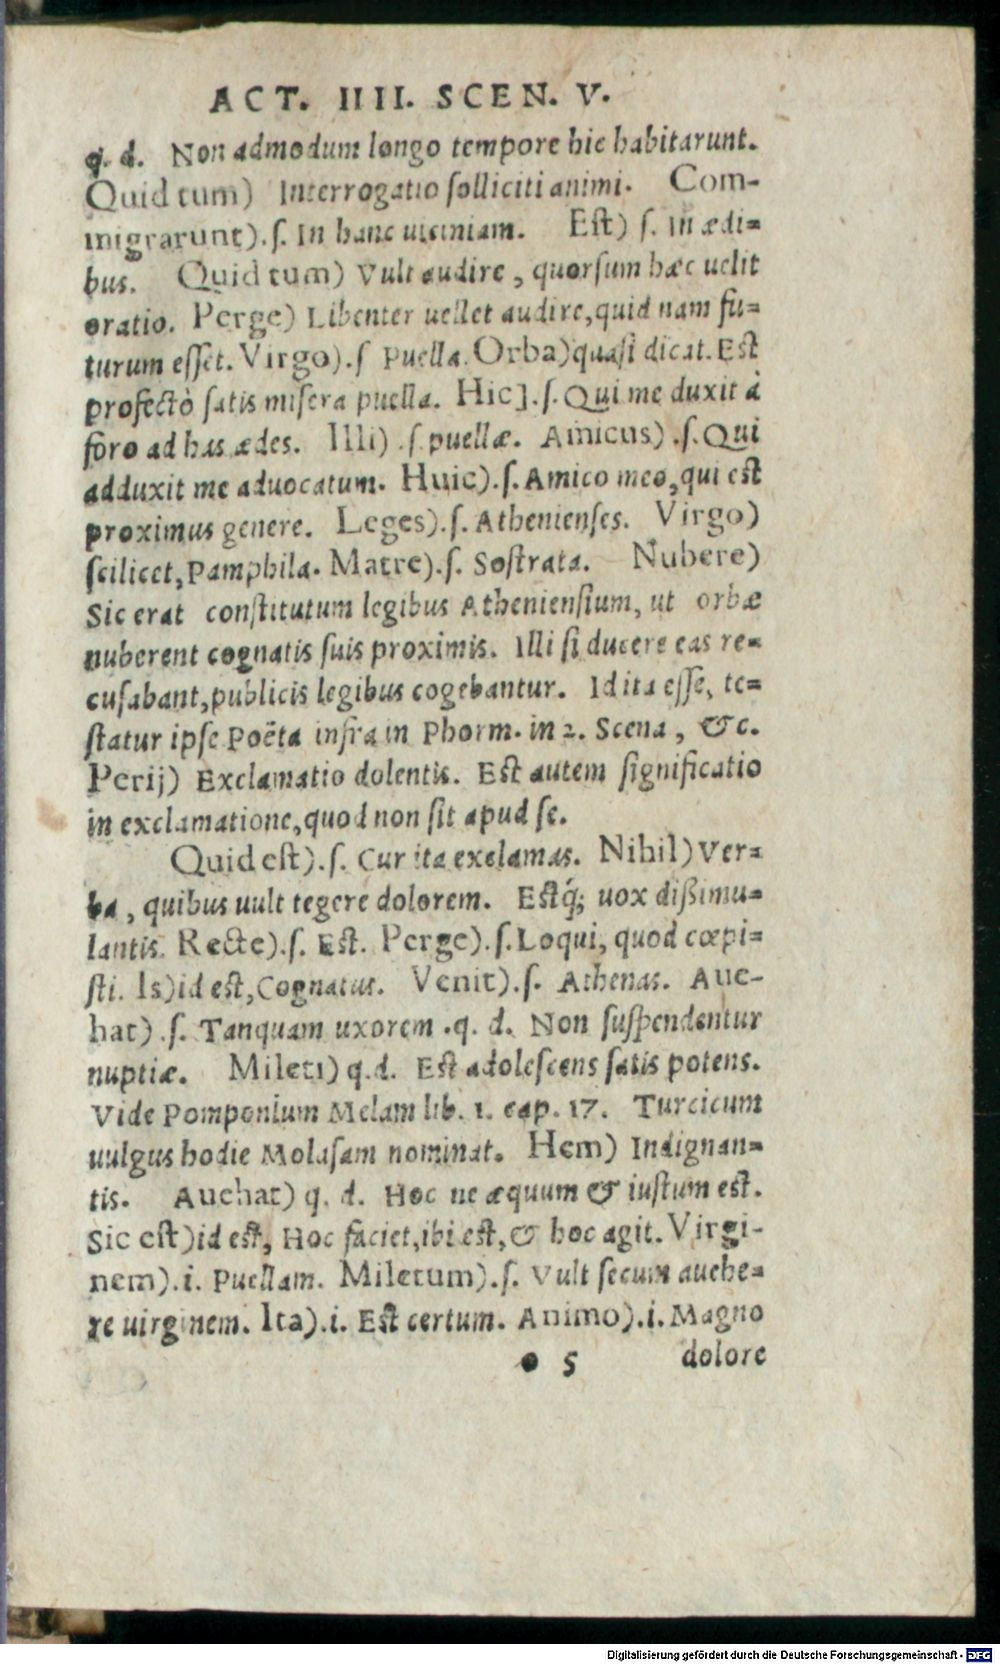 ACT. IIII. SCEN. V.
q. d. Non admodum longo tempore hic habitarunt.
Quid tum) Interrogatio solliciti animi. Com-
migrarunt).ſ. In hanc uiciniam. Est) ſ. In ædi=
bus. Quid tum) Vult audire, quorſum hæc uelit
oratio. Perge) Libenter uellet audire, quid nam fu=
turum eſſet. Virgo).ſ Puella. Orba)quaſi dicat. Est
profectò ſatis miſera puella. Hic].ſ. Qui me duxit à
foro ad has ædes. Illi) .ſ. puellæ. Amicus) .ſ. Qui
adduxit me aduocatum. Huic).ſ. Amico meo, qui est
proximus genere. Leges).ſ. Athenienſes. Virgo)
ſcilicet, Pamphila. Matre).ſ. Soſtrata. Nubere)
Sic erat conſtitutum legibus Athenienſium, ut orbæ
nuberent cognatis ſuis proximis. Illi ſi ducere eas re=
cuſabant, publicis legibus cogebantur. Id ita eſſe, te=
ſtatur ipſe Poëta infra in Phorm. in 2. Scena, &c.
Perij) Exclamatio dolentis. Est autem ſignificatio
in exclamatione, quod non ſit apud ſe.
Quid est).ſ. Cur ita exclamas. Nihil) Ver=
ba, quibus uult tegere dolorem. Estq́; uox dißimu=
lantis. Recte).ſ. Est. Perge).ſ. Loqui, quod cœpi=
ſti. Is)id est, Cognatus. Venit).ſ. Athenas. Aue-
hat) .ſ. Tanquam uxorem .q. d. Non ſuſpendentur
nuptiæ. Mileti) q.d. Est adoleſcens ſatis potens.
Vide Pomponium Melam lib. 1. cap. 17. Turcicum
uulgus hodie Molaſam nominat. Hem) Indignan=
tis. Auehat) q. d. Hoc ne æquum & iuſtum est.
Sic est)id est, Hoc faciet, ibi est, & hoc agit. Virgi-
nem).i. Puellam. Miletum).ſ. Vult ſecum auehe=
re uirginem. Ita).i. Est certum. Animo).i. Magno
5 dolore
Digitalisierung gefördert durch die Deutsche Forschungsgemeinschaft - DFG